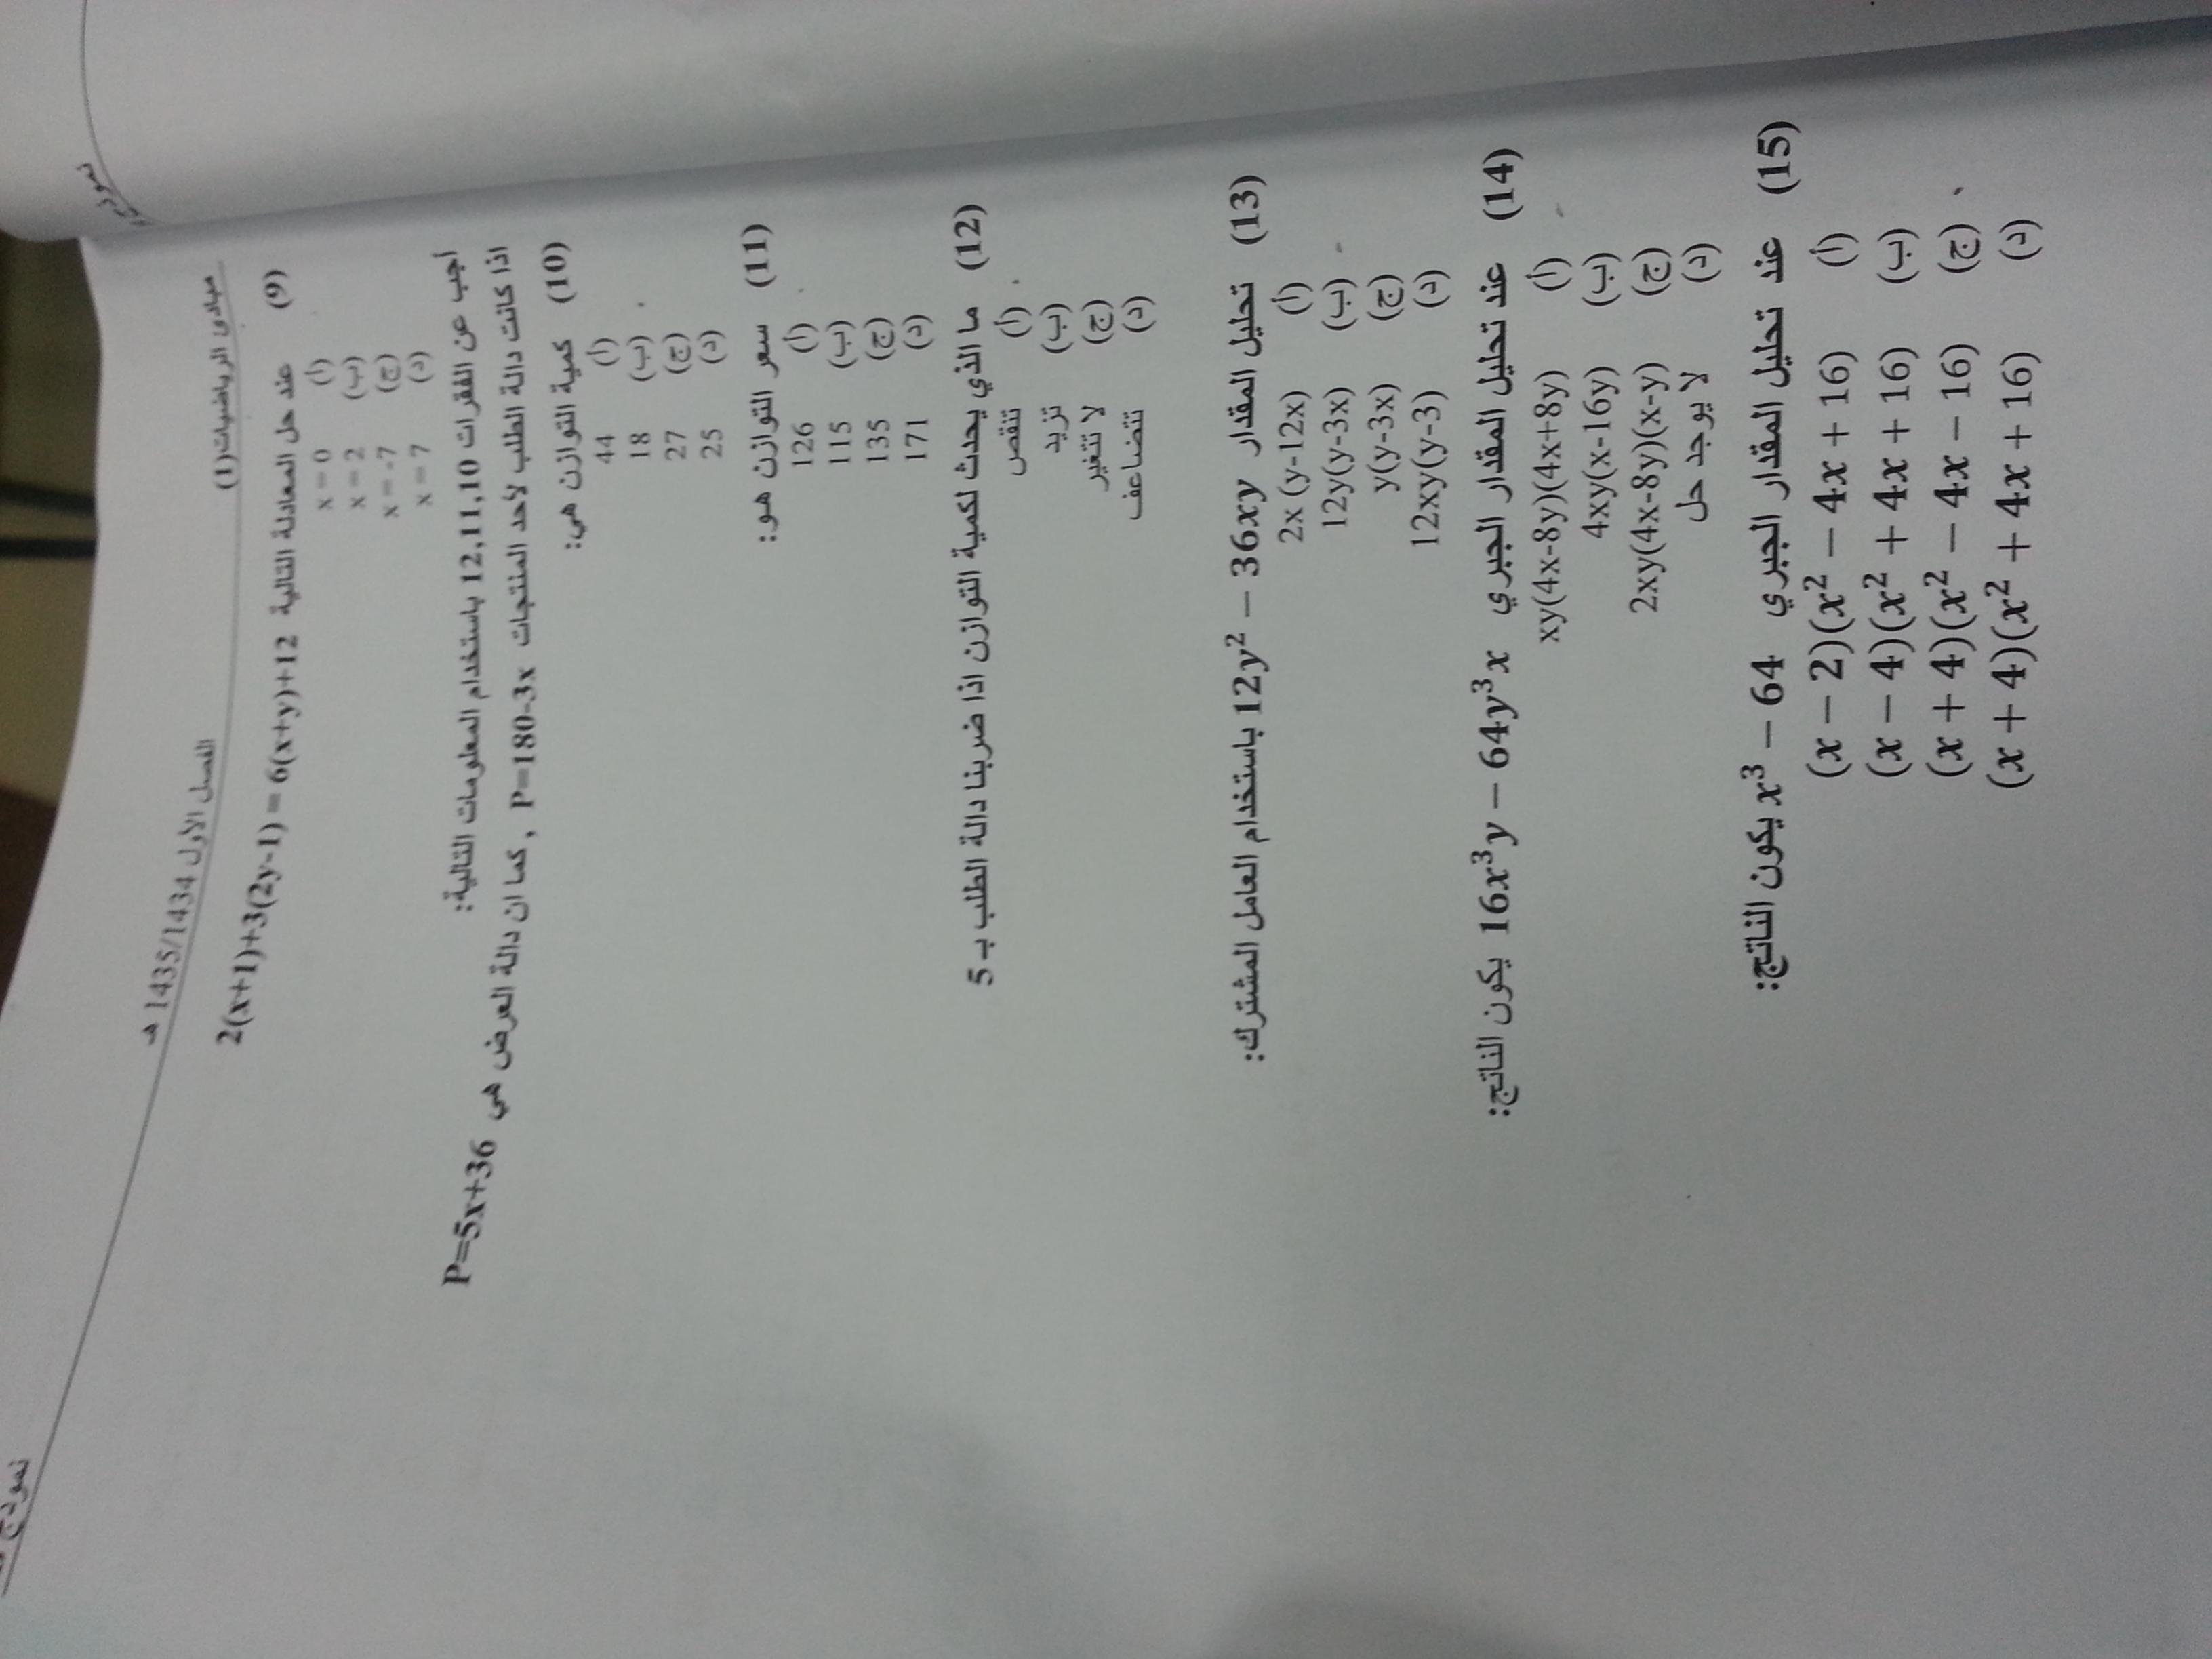 نموذج
مبادئ الرياضيات(1) الفصل الأول 1435/1434 هـ نموذج
(9) عند حل المعادلة التالية 2(x+1)+3(2y-1) = 6(x+y)+12
(أ) x = 0
(ب) x = 2
(ج) x = -7
(د) x = 7
أجب عن الفقرات 12,11,10 باستخدام المعلومات التالية:
اذا كانت دالة الطلب لأحد المنتجات P=180-3x , كما ان دالة العرض هي P=5x+36
(10) كمية التوازن هي:
(أ) 44
(ب) 18
(ج) 27
(د) 25
(11) سعر التوازن هو:
(أ) 126
(ب) 115
(ج) 135
(د) 171
(12) ما الذي يحدث لكمية التوازن اذا ضربنا دالة الطلب بـ 5
(أ) تنقص
(ب) تزيد
(ج) لا تتغير
(د) تتضاعف
(13) تحليل المقدار 12y² − 36xy باستخدام العامل المشترك:
(أ) 2x (y-12x)
(ب) 12y(y-3x)
(ج) y(y-3x)
(د) 12xy(y-3)
(14) عند تحليل المقدار الجبري 16x³y − 64y³x يكون الناتج:
(أ) xy(4x-8y)(4x+8y)
(ب) 4xy(x-16y)
(ج) 2xy(4x-8y)(x-y)
(د) لا يوجد حل
(15) عند تحليل المقدار الجبري x³ − 64 يكون الناتج:
(أ) (x − 2)(x² − 4x + 16)
(ب) (x − 4)(x² + 4x + 16)
(ج) (x + 4)(x² − 4x − 16)
(د) (x + 4)(x² + 4x + 16)